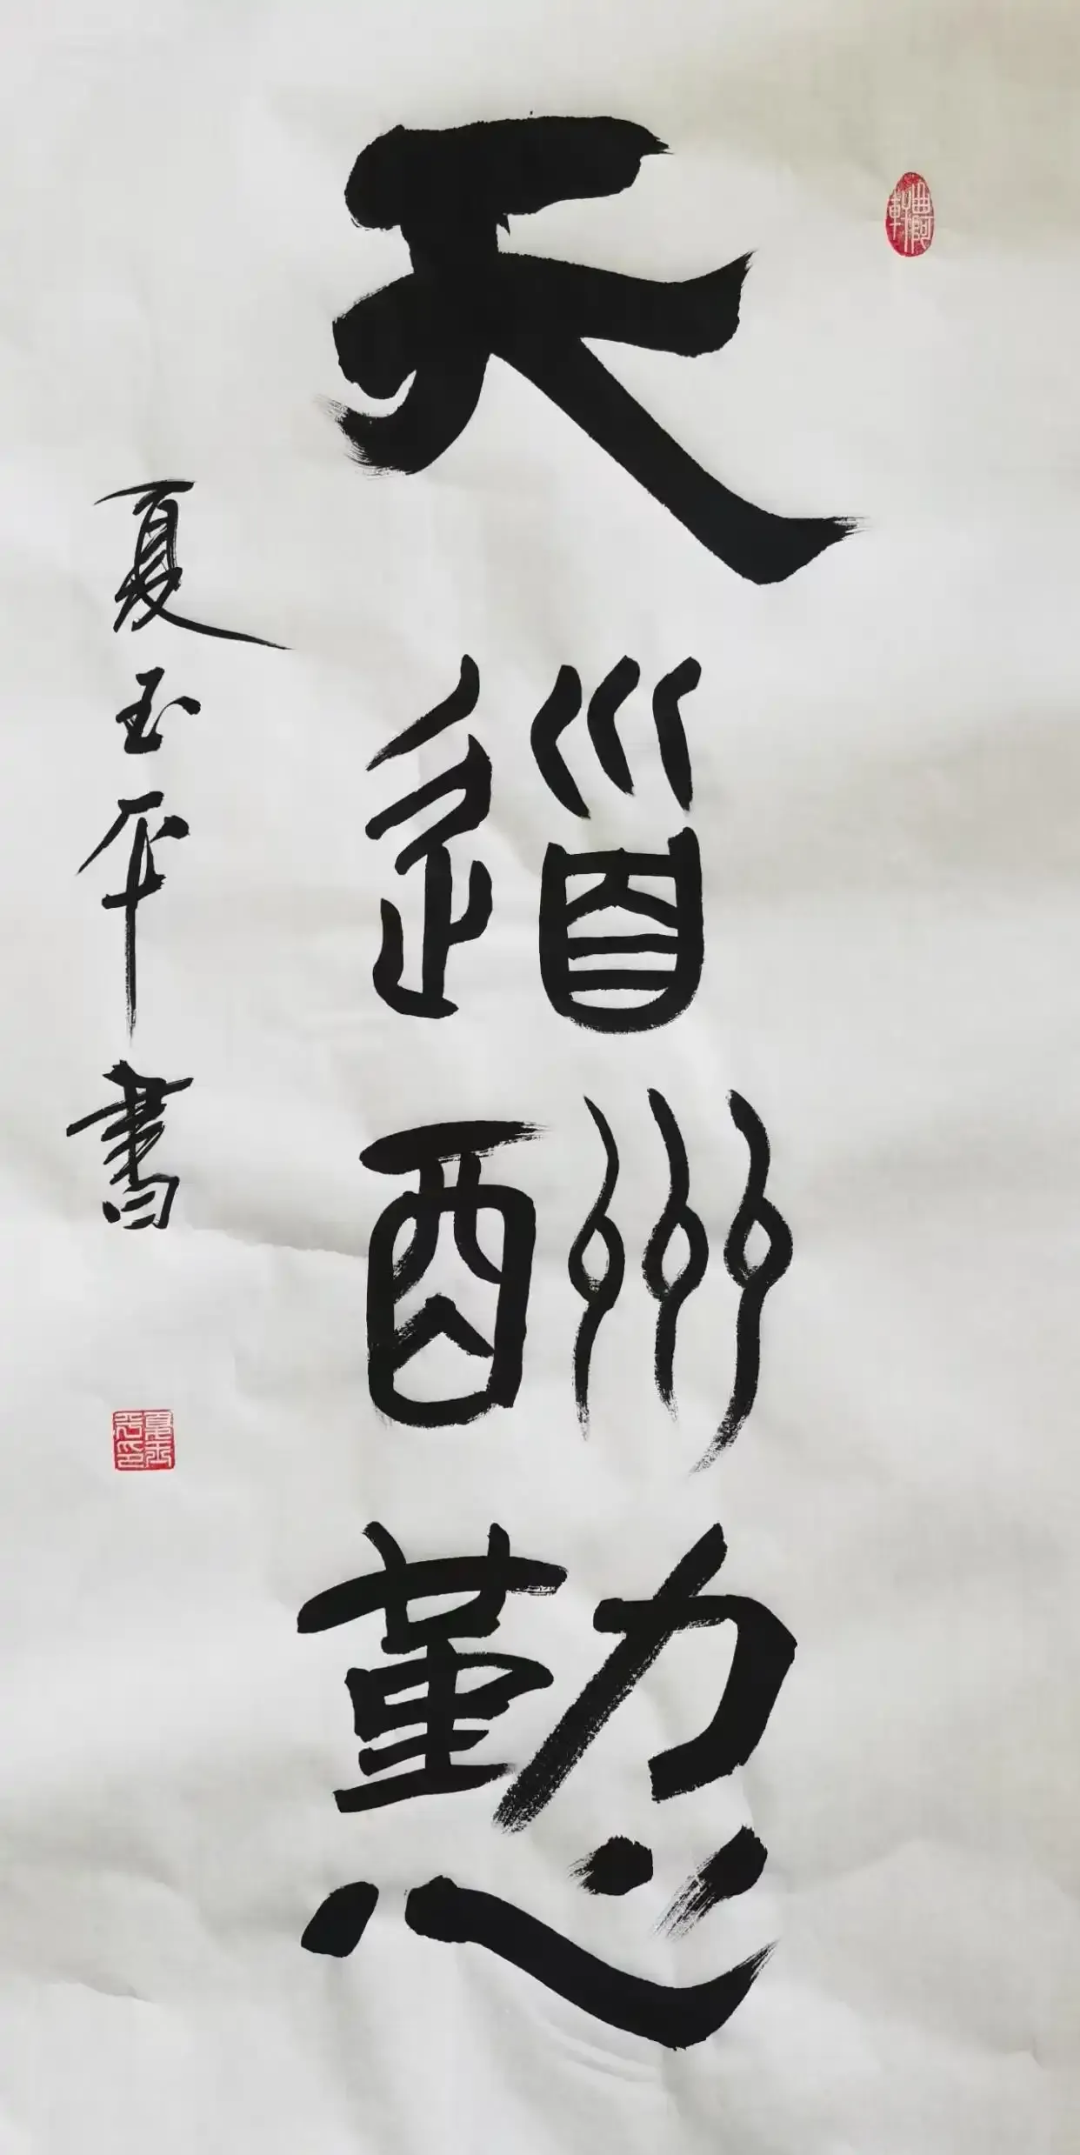 天道酬懃
夏玉平書